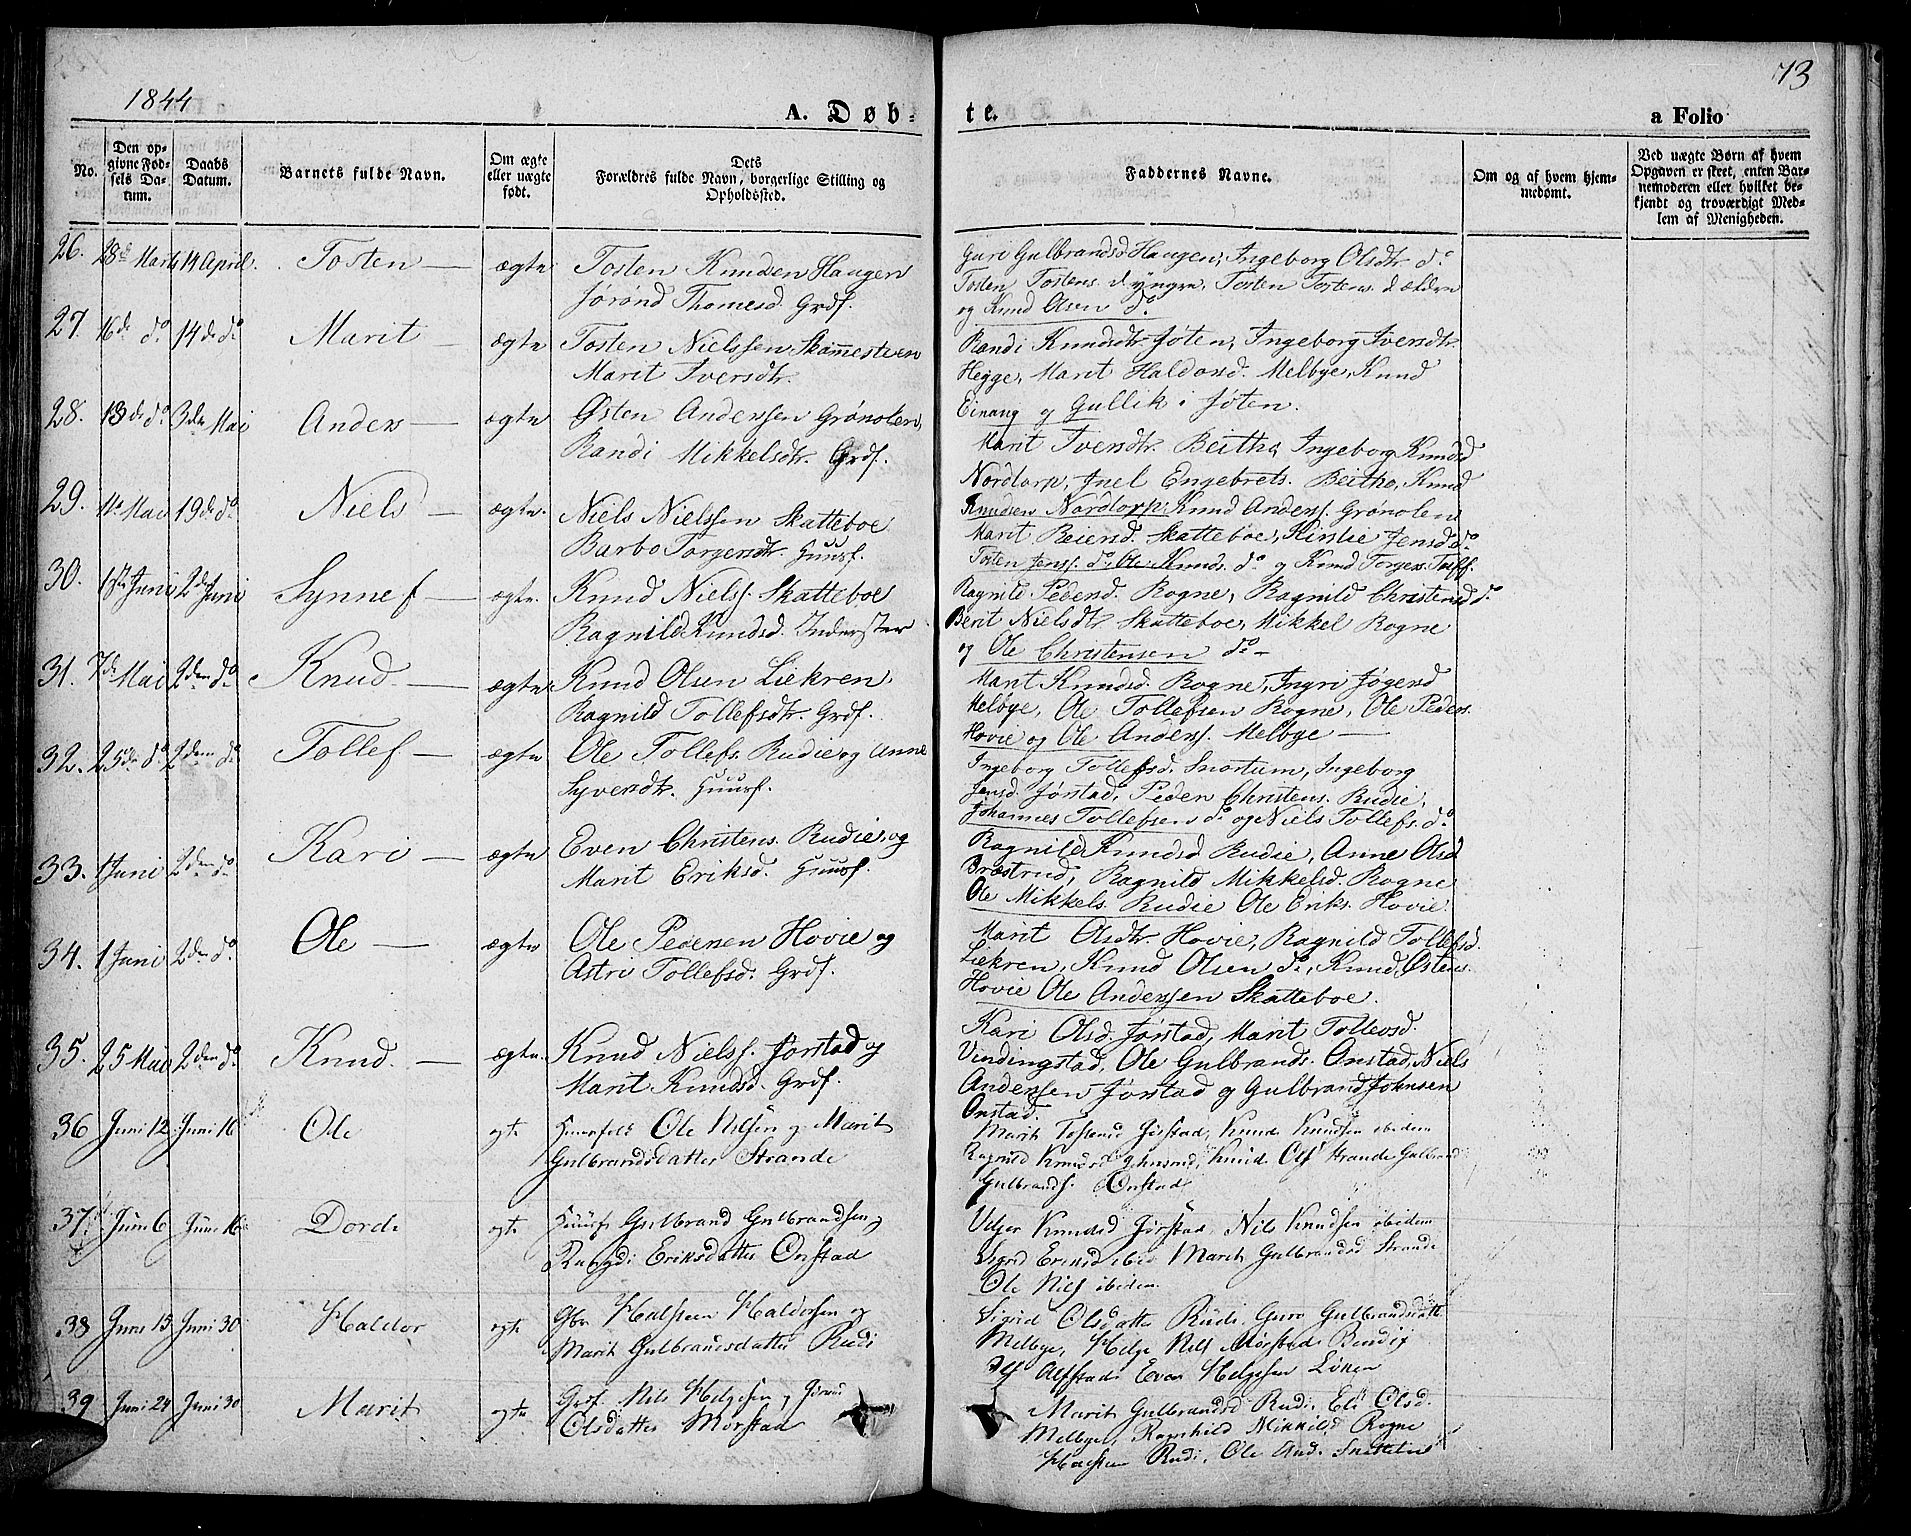 1844
73
A. Døb-
te.
a Folio
No.
Den op-
givne Fød-
sels Da-
tum.
Daabs
Datum.
Barnets fulde Navn.
Om ægte
eller uægte
født.
Dets
Forældres fulde Navn, borgerlige Stilling og
Opholdssted.
Faddernes Navne.
Om og af hvem hjem-
medømt.
Ved uægte Børn af hvem
Opgaven er skeet, enten Bar-
nemoderen eller hvilket be-
kjendt og troværdigt Med-
lem af Menigheden.
26. 28de Marts 14 April. Tosten — ægte
Tosten Knudsen Haugen
Jørønd Thomesd. Grdf.
Guri Gulbrandsd Haugen, Ingeborg Olsdtr. do
Tosten Tostens. d. yngre, Tosten Tostens. d. ældre
og Knud Olsen do.
27. 16de do 14de do Marit — ægte
Tosten Nielssen Skammesteen
Marit Iversdtr.
Randi Knudsdtr Jøten, Ingeborg Iversdtr.
Hegge, Marit Haldorsd. Melbye, Knud
Einang og Gullik i Jøten.
28. 13de do 3die Mai Anders — ægte
Østen Anderssen Grønolen,
Randi Mikkelsdtr. Grdf.
Marit Iversdtr. Beitho, Ingeborg Knudsd
Nordtorp, Joel Engebrets. Beitho, Knud
Knudsen Nordtorp Knud Anders. Grønolen
29. 11te Mai 19de do Niels — ægte
Niels Nielssen Skatteboe
Barbo Torgersdtr. Huusf.
Marit Beiersd. Skatteboe, Kirstie Jensd do
Tosten Jens. do, Ole Knuds. do og Knud Torgers. Tuff.
30. 1ste Juni 2den Juni Synnef — ægte.
Knud Niels. Skatteboe
Ragnild Knudsd. Inderster
Ragnild Pedersd. Rogne, Ragnild Christensd do
Berit Nielsdtr Skatteboe, Mikkel Rogne
og Ole Christensen do —
31. 7de Mai 2den do Knud. — ægte
Knud Olsen Liekren
Ragnild Tollefsdtr. Grdf.
Marit Knudsd. Rogne, Ingri Jøgersd
Melbye, Ole Tollefsen Rogne, Ole Peders.
Hovie og Ole Anders. Melbye —
32. 25de do 2den do Tollef — ægte
Ole Tollefs. Rudie og Anne
Syversdtr. Huusf.
Ingeborg Tollefsd. Snortum, Ingeborg
Jensd. Jørstad, Peder Christens. Rudie,
Johannes Tollefsen do og Niels Tollefs. do
33. 1 Juni 2den do Kari — ægte
Even Christens. Rudie, og
Marit Eriksd. Huusf.
Ragnild Knudsd Rudie, Anne Olsd
Bræstrud, Ragnild Mikkelsd. Rogne
Ole Mikkels. Rudie Ole Eriks. Hovie.
34. 1 Juni 2den do Ole — ægte
Ole Pedersen Hovie og
Astri Tollefsd. Grdf.
Marit Olsdtr. Hovie, Ragnild Tollefsd.
Liekren, Knud Olsen do, Knud Østens.
Hovie Ole Anderssen Skatteboe.
35. 25 Mai 2den do Knud. — ægte.
Knud Niels. Jørstad og
Marit Knudsd. Grdf.
Kari Olsd. Jørstad, Marit Tollevsd.
Vindingstad, Ole Gulbrands. Onstad, Niels
Andersen Jørstad og Gulbrand Johnsen
Onstad.
36 Juni 12 Juni 16 Ole egte
Ole Nilsen og Marit
Gulbrandsdatter Strande
Marit Jørstad, Knud Knudsen ibidem
Ragnild Knudsd Knud Ols Strande Gulbrand
Gulbrands. Onstad
37 Juni 6 Juni 16 Dordi egte
Huusf. Gulbrand Gulbrandsen og
Rangdi Eriksdatter Onstad
Knudsd Jørstad, Nils Knudsen ibidem
Sigrid Eriksd ibid Marit Gulbrandsd Strande
Ole Nils ibidem.
38 Juni 15 Juni 30 Haldor egte
Gbr Halsten Haldorsen og
Marit Gulbrandsdatter Rudi
Sigrid Olsdatter Rudi, Guro Gulbrandsdatt
Melbye, Helge Nils Mørstad Bendix
Alfstad Even Helgesen Løken
39 Juni 24 Juni 30 Marit egte
Grdf. Nils Helgesen og
Olsdatter Mørstad
Marit Gulbrandsd Rudi, Eli Olsd.
Melbye, Ragnhild Mikkelsd Rogne
Halsten Rudi, Ole And.